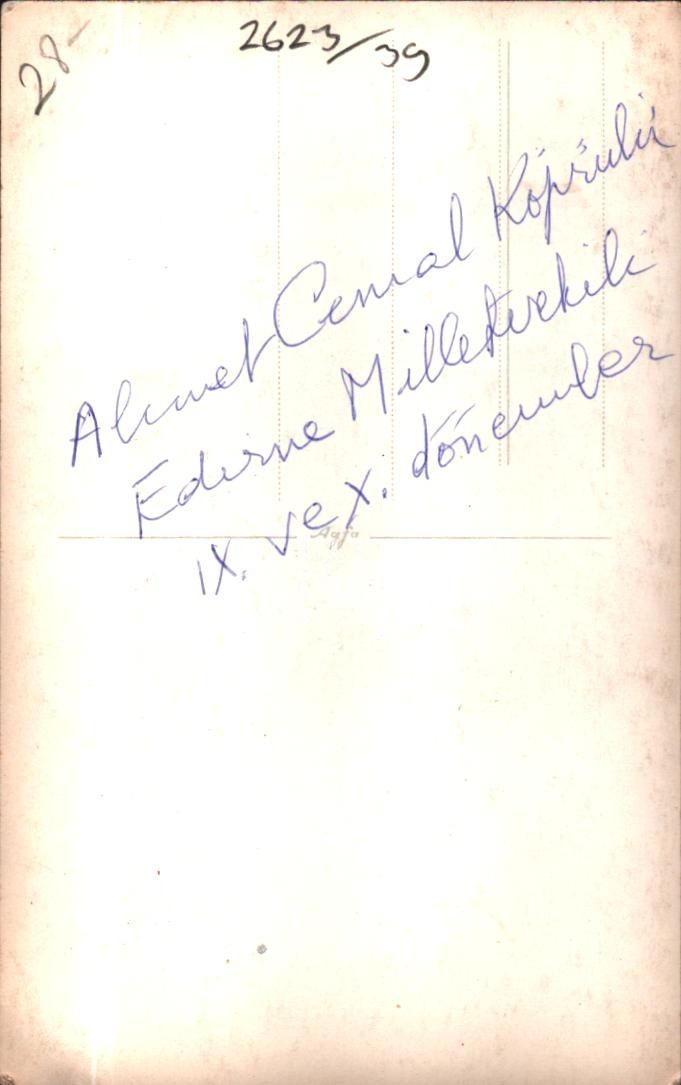 28-
2623/39
Ahmet Cemal Köprülü
Edirne Milletvekili
IX. ve X. dönemler
Agfa